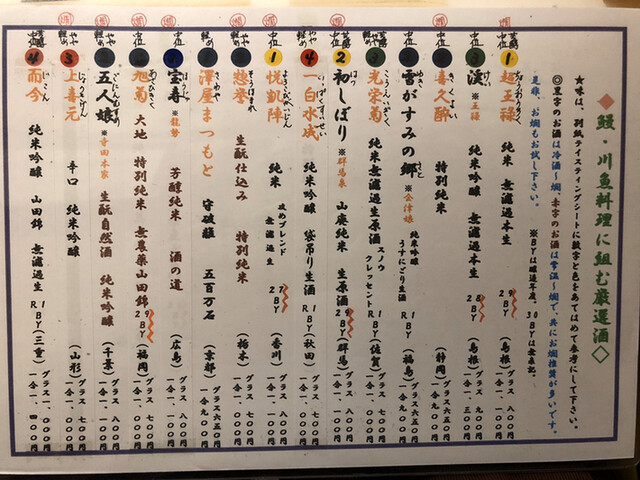 ◆鰻・川魚料理に組む厳選酒◇
★味は、別紙テイスティングシートに数字と色をあてはめて参考にして下さい。
◎黒字のお酒は冷酒〜燗、赤字のお酒は常温〜燗で、共にお燗推奨が多いです。
是非、お燗もお試し下さい。 ※BYは醸造年度。30BYは無表記。
1 超王禄 純米 無濾過本生 29BY (島根) グラス 八〇〇円
3 渓 ※王禄 純米吟醸 無濾過本生 28BY (島根) グラス 九〇〇円 一合一、三〇〇円
喜久酔 特別純米 (静岡) グラス六五〇円 一合九〇〇円
雪がすみの郷 ※会津娘 純米吟醸 うすにごり生酒 R1BY (福島) グラス六五〇円 一合九〇〇円
3 光栄菊 純米無濾過生原酒 スノウクレッセント R1BY (佐賀) グラス 七〇〇円 一合一、〇〇〇円
2 初しぼり ※群馬泉 山廃純米 生原酒 29BY (群馬) グラス 七〇〇円 一合一、〇〇〇円
4 一白水成 純米吟醸 袋吊り生酒 R1BY (秋田) グラス 七〇〇円 一合一、〇〇〇円
1 悦凱陣 純米 攻めブレンド 無濾過生 27BY (香川) グラス 八〇〇円
惣誉 生酛仕込み 特別純米 (栃木)
澤屋まつもと 守破離 五百万石 (京都) グラス六五〇円 一合九〇〇円
宝寿 ※龍勢 芳醇純米 酒の道 (広島)
旭菊 大地 特別純米 無農薬山田錦 29BY (福岡) グラス 七〇〇円
五人娘 ※寺田本家 生酛自然酒 純米吟醸 (千葉) グラス 八〇〇円
3 上喜元 辛口 純米吟醸 (山形) グラス 七〇〇円
4 而今 純米吟醸 山田錦 無濾過生 R1BY (三重)